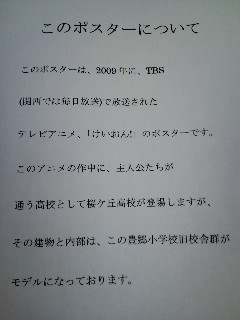 このポスターについて
このポスターは、2009年に、TBS
(関西では毎日放送)で放送された
テレビアニメ、「けいおん!」のポスターです。
このアニメの作中に、主人公たちが
通う高校として桜ケ丘高校が登場しますが、
その建物と内部は、この豊郷小学校旧校舎群が
モデルになっております。